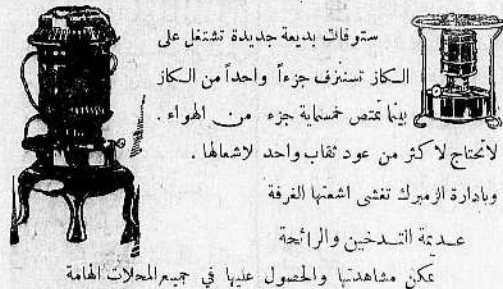 ستوفات بديعة جديدة تشتغل على
الكاز تستنزف جزءاً واحداً من الكاز
بينما تمتص خمسماية جزء من الهواء .
لاتحتاج لاكثر من عود ثقاب واحد لاشعالها .
وبادارة الزمبرك تغشى اشعتها الغرفة
عديمة التدخين والرائحة
يمكن مشاهدتها والحصول عليها في جميع المحلات الهامة